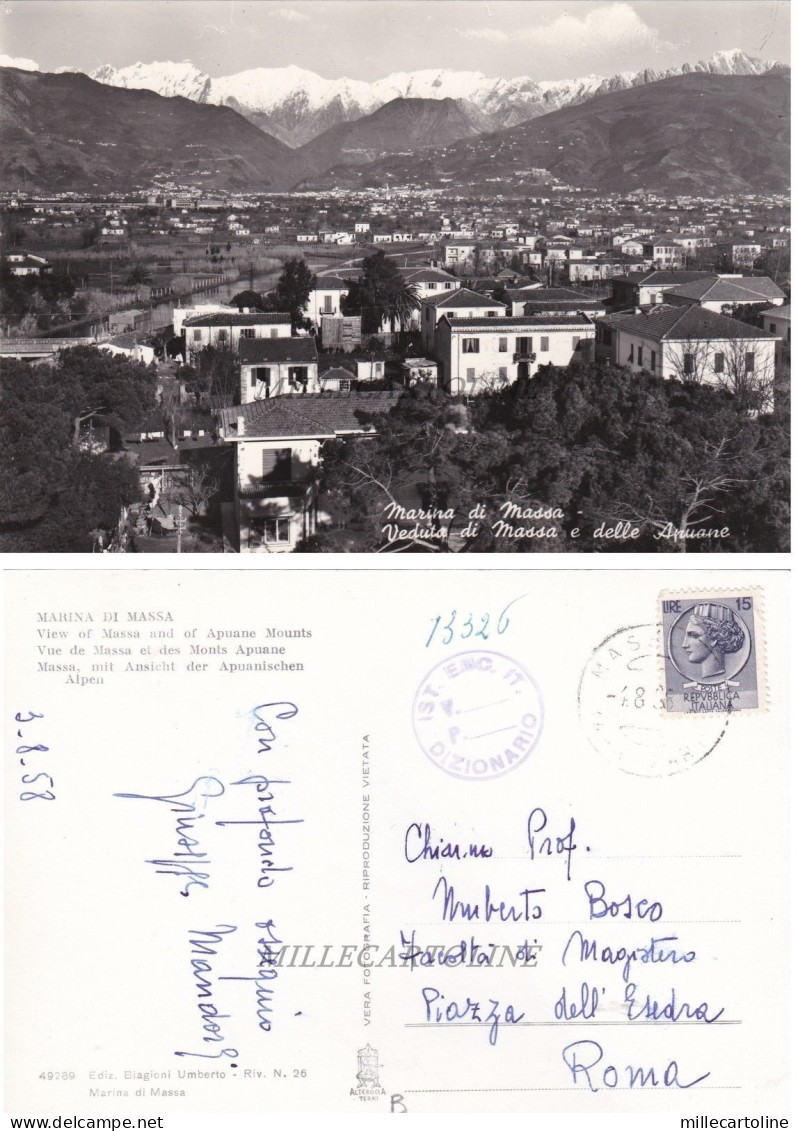 Marina di Massa -
Veduta di Massa e delle Apuane
MARINA DI MASSA
View of Massa and of Apuane Mounts
Vue de Massa et des Monts Apuane
Massa, mit Ansicht der Apuanischen
Alpen
3-8-58
Con profondo ossequio
Giuseppe Mandorj
VERA FOTOGRAFIA - RIPRODUZIONE VIETATA
49289 Ediz. Biagioni Umberto - Riv. N. 26
Marina di Massa
ALTEROCCA
TERNI
B
13326
IST. ENC. IT.
V.
P.
DIZIONARIO
MASSA
LIRE 15
POSTE
REPVBBLICA
ITALIANA
Chiar.mo Prof.
Umberto Bosco
Facoltà di Magistero
Piazza dell'Esedra
Roma
MILLECARTOLINE
millecartoline
delcampe.net